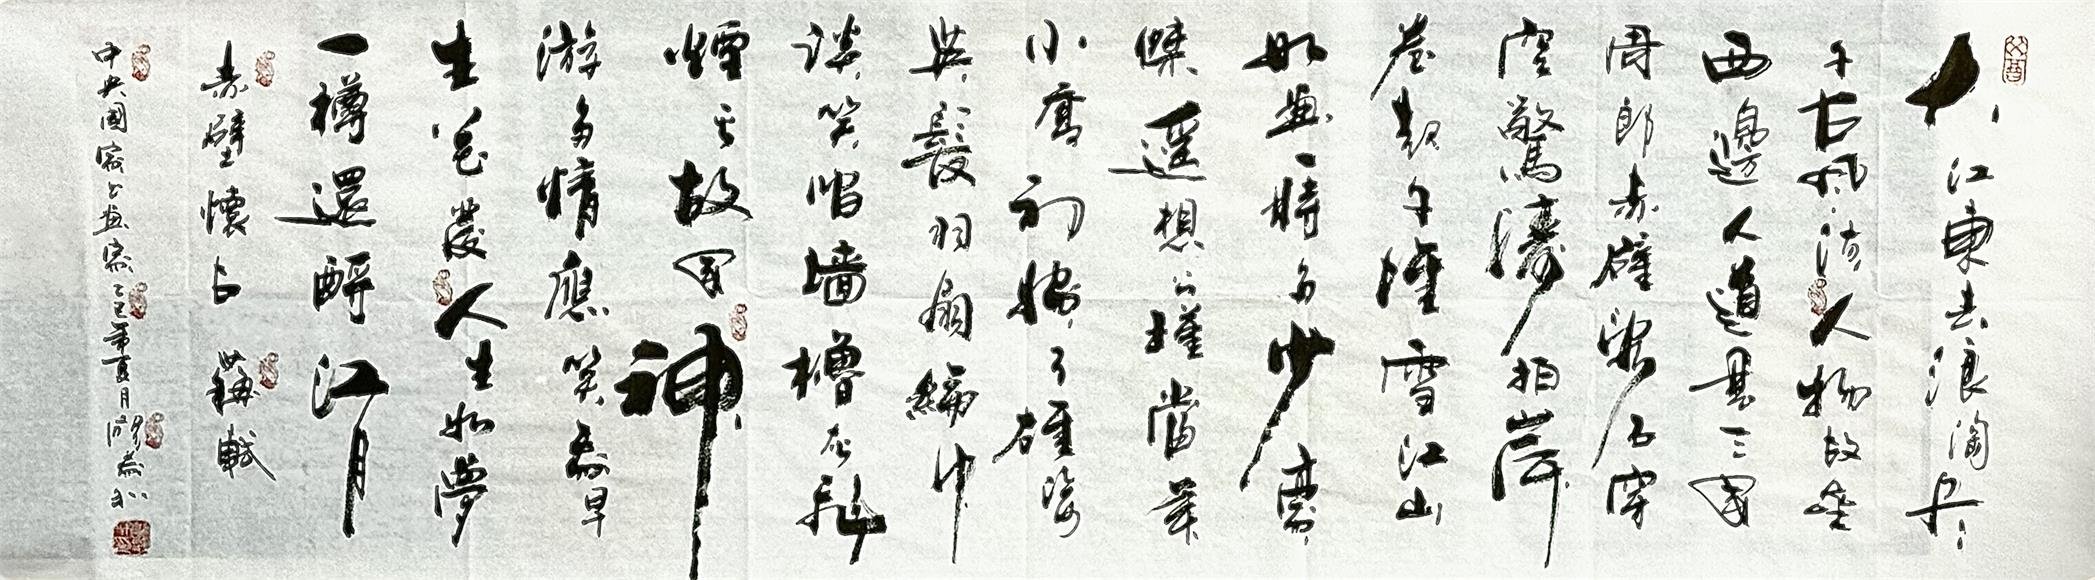 大江東去浪淘盡
千古風流人物故壘
西邊人道是三國
周郎赤壁亂石穿
空驚濤拍岸
卷起千堆雪江山
如畫一時多少豪
傑遥想公瑾當年
小喬初嫁了雄姿
英發羽扇綸巾
談笑间墙櫓灰飛
煙滅故國神
游多情應笑我早
生華髮人生如夢
一樽還酹江月
赤壁懷古 蘇軾
中央國家 畫家 乙巳年夏月